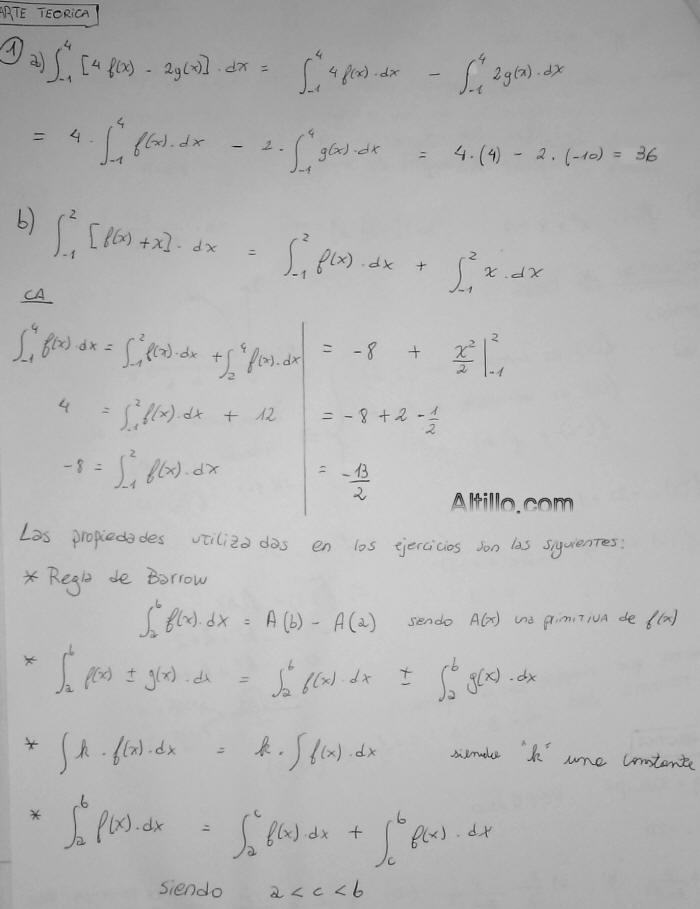 ARTE TEORICA
1) a) ∫₋₁⁴ [4 f(x) - 2g(x)] · dx = ∫₋₁⁴ 4 f(x) · dx - ∫₋₁⁴ 2g(x) · dx
= 4 · ∫₋₁⁴ f(x) · dx - 2 · ∫₋₁⁴ g(x) · dx = 4 · (4) - 2 · (-10) = 36
b) ∫₋₁² [f(x) + x] · dx = ∫₋₁² f(x) · dx + ∫₋₁² x · dx
CA
∫₋₁⁴ f(x) · dx = ∫₋₁² f(x) · dx + ∫₂⁴ f(x) · dx | = -8 + x²/2 |₋₁²
4 = ∫₋₁² f(x) · dx + 12 | = -8 + 2 - 1/2
-8 = ∫₋₁² f(x) · dx | = -13/2
Altillo.com
Las propiedades utilizadas en los ejercicios son las siguientes:
* Regla de Barrow
∫ₐᵇ f(x) · dx = A(b) - A(a) sendo A(x) una primitiva de f(x)
* ∫ₐᵇ f(x) ± g(x) · dx = ∫ₐᵇ f(x) · dx ± ∫ₐᵇ g(x) · dx
* ∫ k · f(x) · dx = k · ∫ f(x) · dx siendo "k" una constante
* ∫ₐᵇ f(x) · dx = ∫ₐᶜ f(x) · dx + ∫꜀ᵇ f(x) · dx
siendo a < c < b